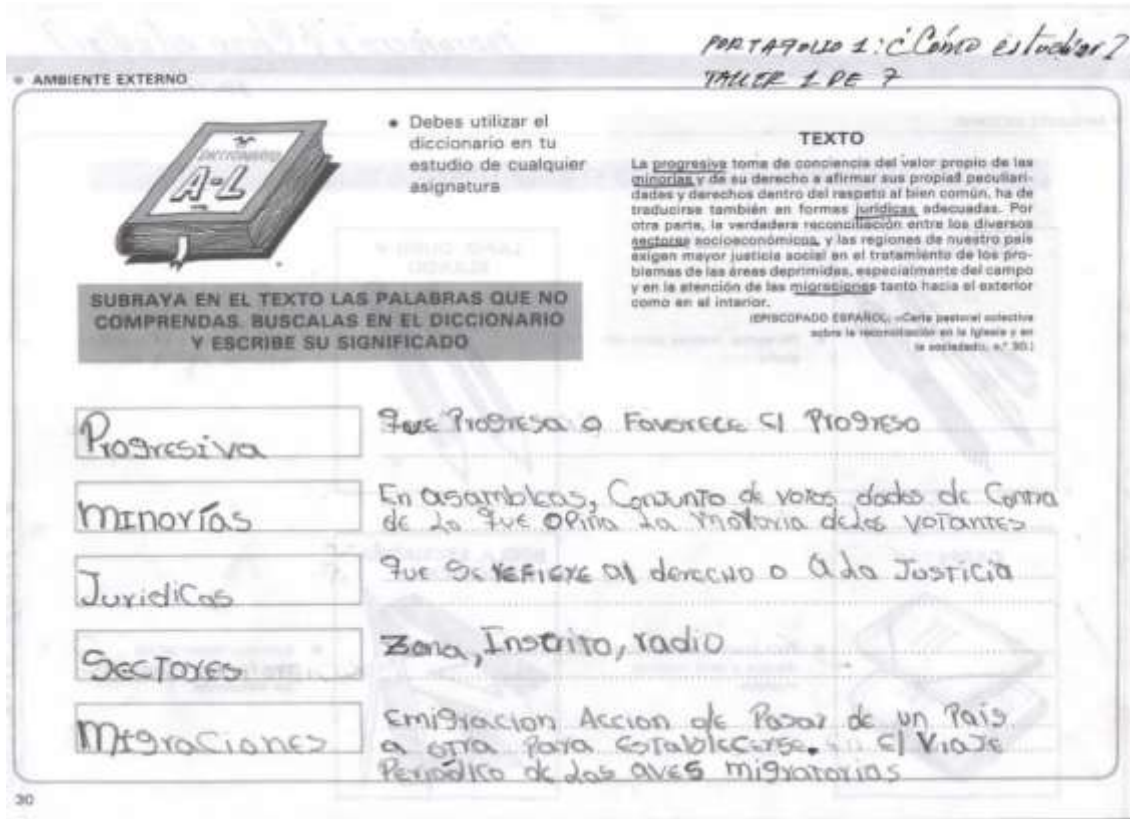 PORTAFOLIO 1: ¿Cómo estudiar?
TALLER 1 DE 7
AMBIENTE EXTERNO
DICCIONARIO
A-L
• Debes utilizar el
diccionario en tu
estudio de cualquier
asignatura
SUBRAYA EN EL TEXTO LAS PALABRAS QUE NO
COMPRENDAS. BUSCALAS EN EL DICCIONARIO
Y ESCRIBE SU SIGNIFICADO
TEXTO
La progresiva toma de conciencia del valor propio de las
minorías y de su derecho a afirmar sus propias peculiari-
dades y derechos dentro del respeto al bien común, ha de
traducirse también en formas jurídicas adecuadas. Por
otra parte, la verdadera reconciliación entre los diversos
sectores socioeconómicos, y las regiones de nuestro país
exigen mayor justicia social en el tratamiento de los pro-
blemas de las áreas deprimidas, especialmente del campo
y en la atención de las migraciones tanto hacia el exterior
como en el interior.
(EPISCOPADO ESPAÑOL: «Carta pastoral colectiva
sobre la reconciliación en la Iglesia y en
la sociedad», n.º 30.)
Progresiva
que Progresa o Favorece el Progreso
Minorías
En asambleas, Conjunto de votos dados de Contra
de lo que opina la mayoria delos votantes
Juridicas
que se refiere al derecho o a la Justicia
Sectores
Zona, radio
Migraciones
Emigracion Accion de Pasar de un País
a otra para establecerse. El Viaje
Periódico de las aves migratorias
30